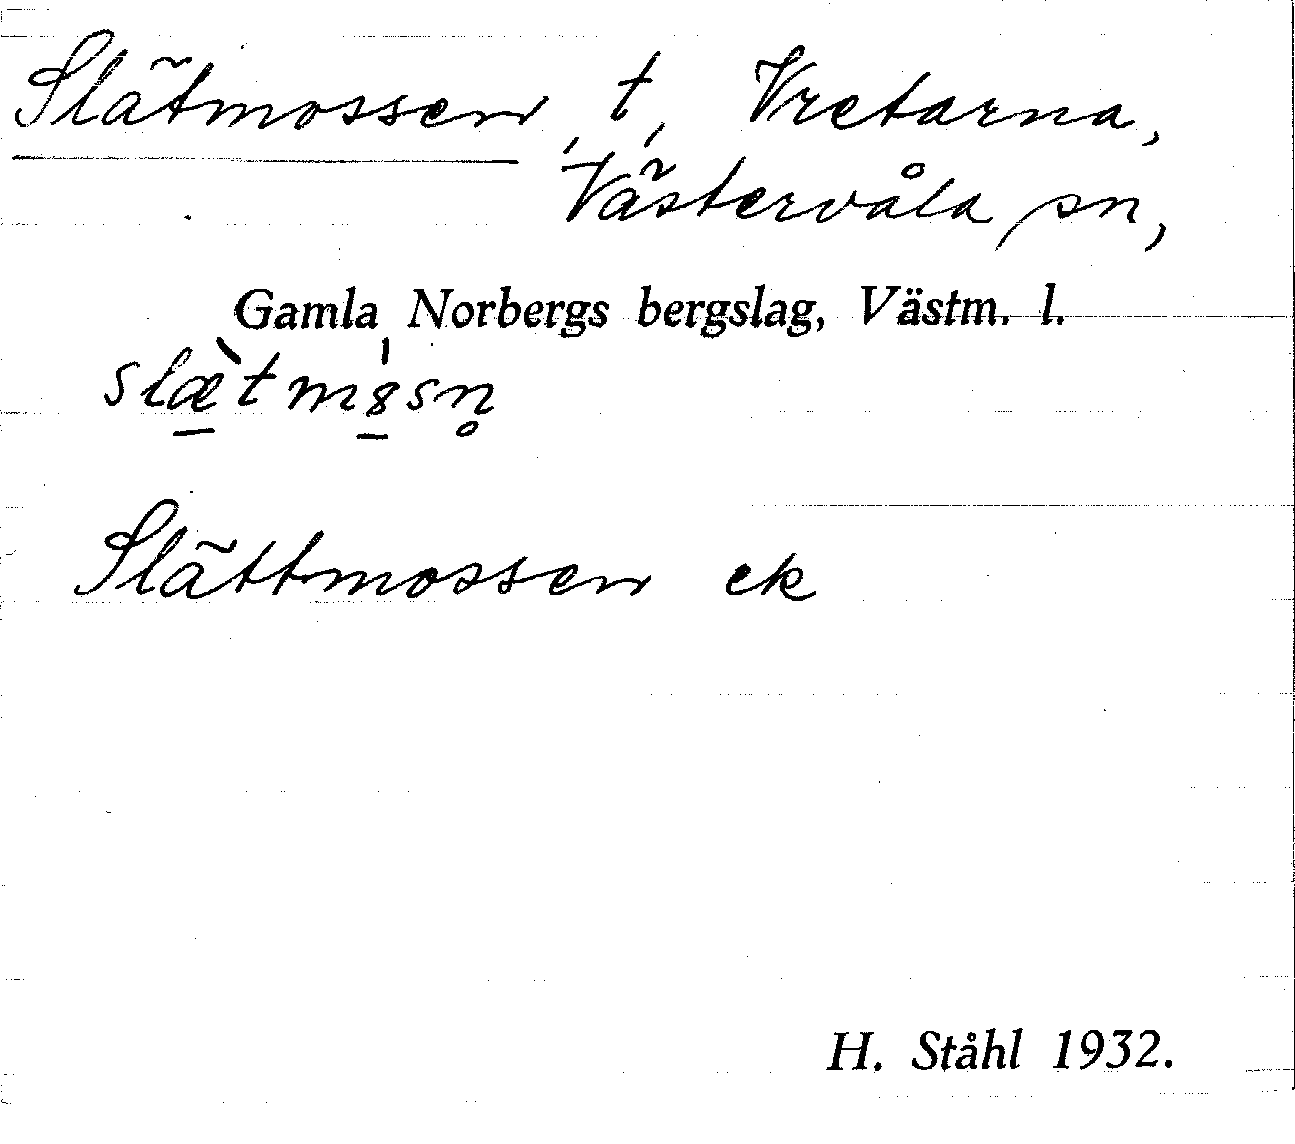 Slätmossen, t, Vretarna,
Västervåla sn,
Gamla Norbergs bergslag, Västm. l.
slæ̱̀tmȣ̱̍sn̥
Slättmossen ek
H. Ståhl 1932.